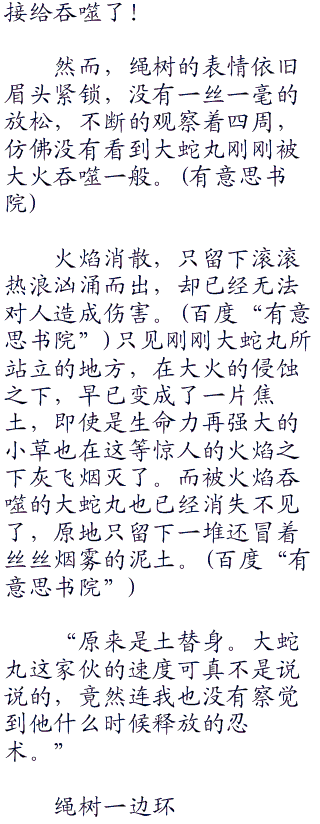 接给吞噬了！
然而，绳树的表情依旧
眉头紧锁，没有一丝一毫的
放松，不断的观察着四周，
仿佛没有看到大蛇丸刚刚被
大火吞噬一般。(有意思书
院)
火焰消散，只留下滚滚
热浪汹涌而出，却已经无法
对人造成伤害。(百度“有意
思书院”)只见刚刚大蛇丸所
站立的地方，在大火的侵蚀
之下，早已变成了一片焦
土，即使是生命力再强大的
小草也在这等惊人的火焰之
下灰飞烟灭了。而被火焰吞
噬的大蛇丸也已经消失不见
了，原地只留下一堆还冒着
丝丝烟雾的泥土。(百度“有
意思书院”)
“原来是土替身。大蛇
丸这家伙的速度可真不是说
说的，竟然连我也没有察觉
到他什么时候释放的忍
术。”
绳树一边环